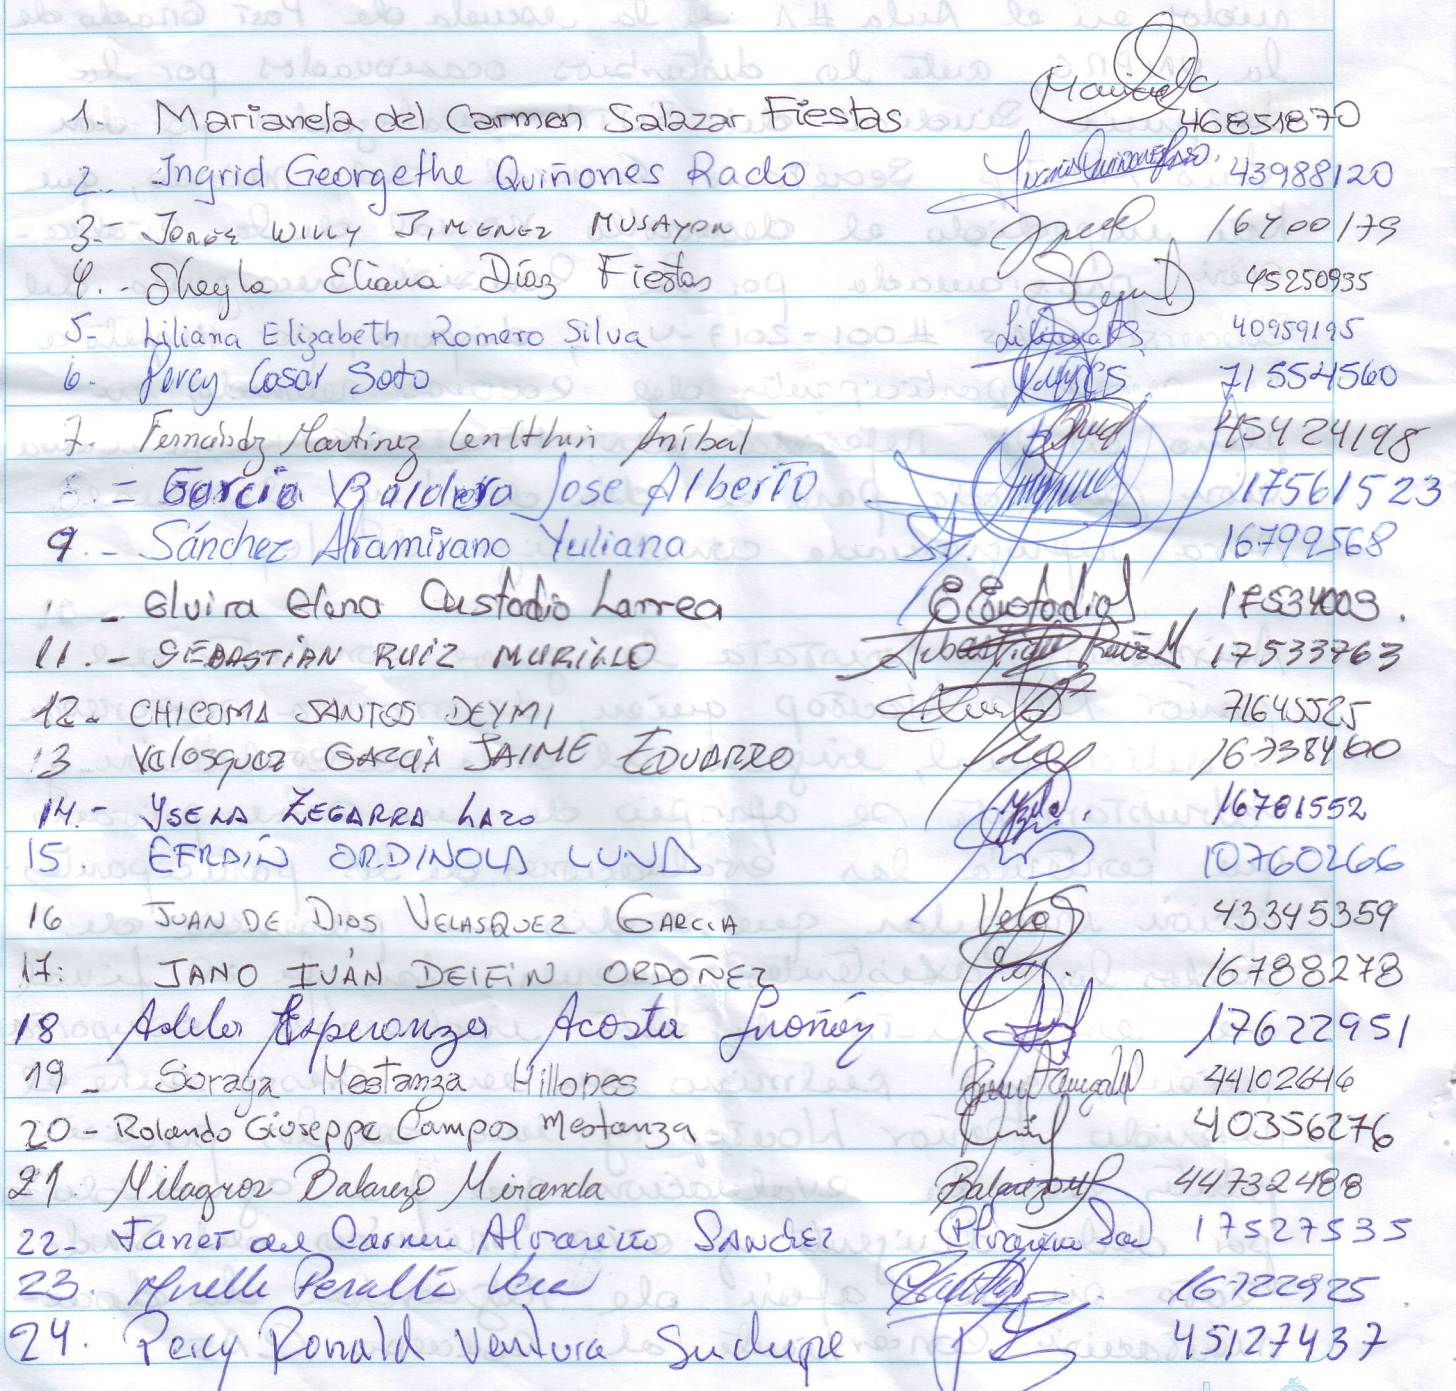 1- Marianela del Carmen Salazar Fiestas Marianela 46851870
2.- Ingrid Georgethe Quiñones Rado 43988120
3- Jorge WILLY JIMENEZ MUSAYON 16700179
4.- Sheyla Eliana Díaz Fiestas 45250935
5- Liliana Elizabeth Romero Silva 40959195
6- Percy Cosar Soto 715554560
7- Fernández Martinez Lenlthin Aníbal 45424198
8= Garcia Baldera Jose Alberto 17561523
9.- Sánchez Altamirano Yuliana 16799568
- Elvira Elena Custodio Larrea E Custodio 17534003.
11.- SEBASTIÁN RUIZ MURILLO Sebastián Ruiz M 17533763
12- CHICOMA SANTOS DEYMI 71645525
13 Velasquez GARCÍA JAIME EDUARDO 16738400
14.- YSELA ZEGARRA LAZO 16781552
15. EFRAÍN ORDINOLA LUNA 10760266
16 JUAN DE DIOS VELASQUEZ GARCIA 43345359
17: JANO IVÁN DELFIN ORDOÑEZ 16788278
18 Adela Esperanza Acosta 17622951
19- Soraya Mestanza Millones 44102646
20- Rolando Giuseppe Campos Mestanza 40356276
21. Milagros Balarezo Miranda Balarezo M 44732488
22- Janet del Carmen SANCHEZ 17527535
23. Peralta Vera 16722925
24. Percy Ronald Ventura Suclupe 45127437